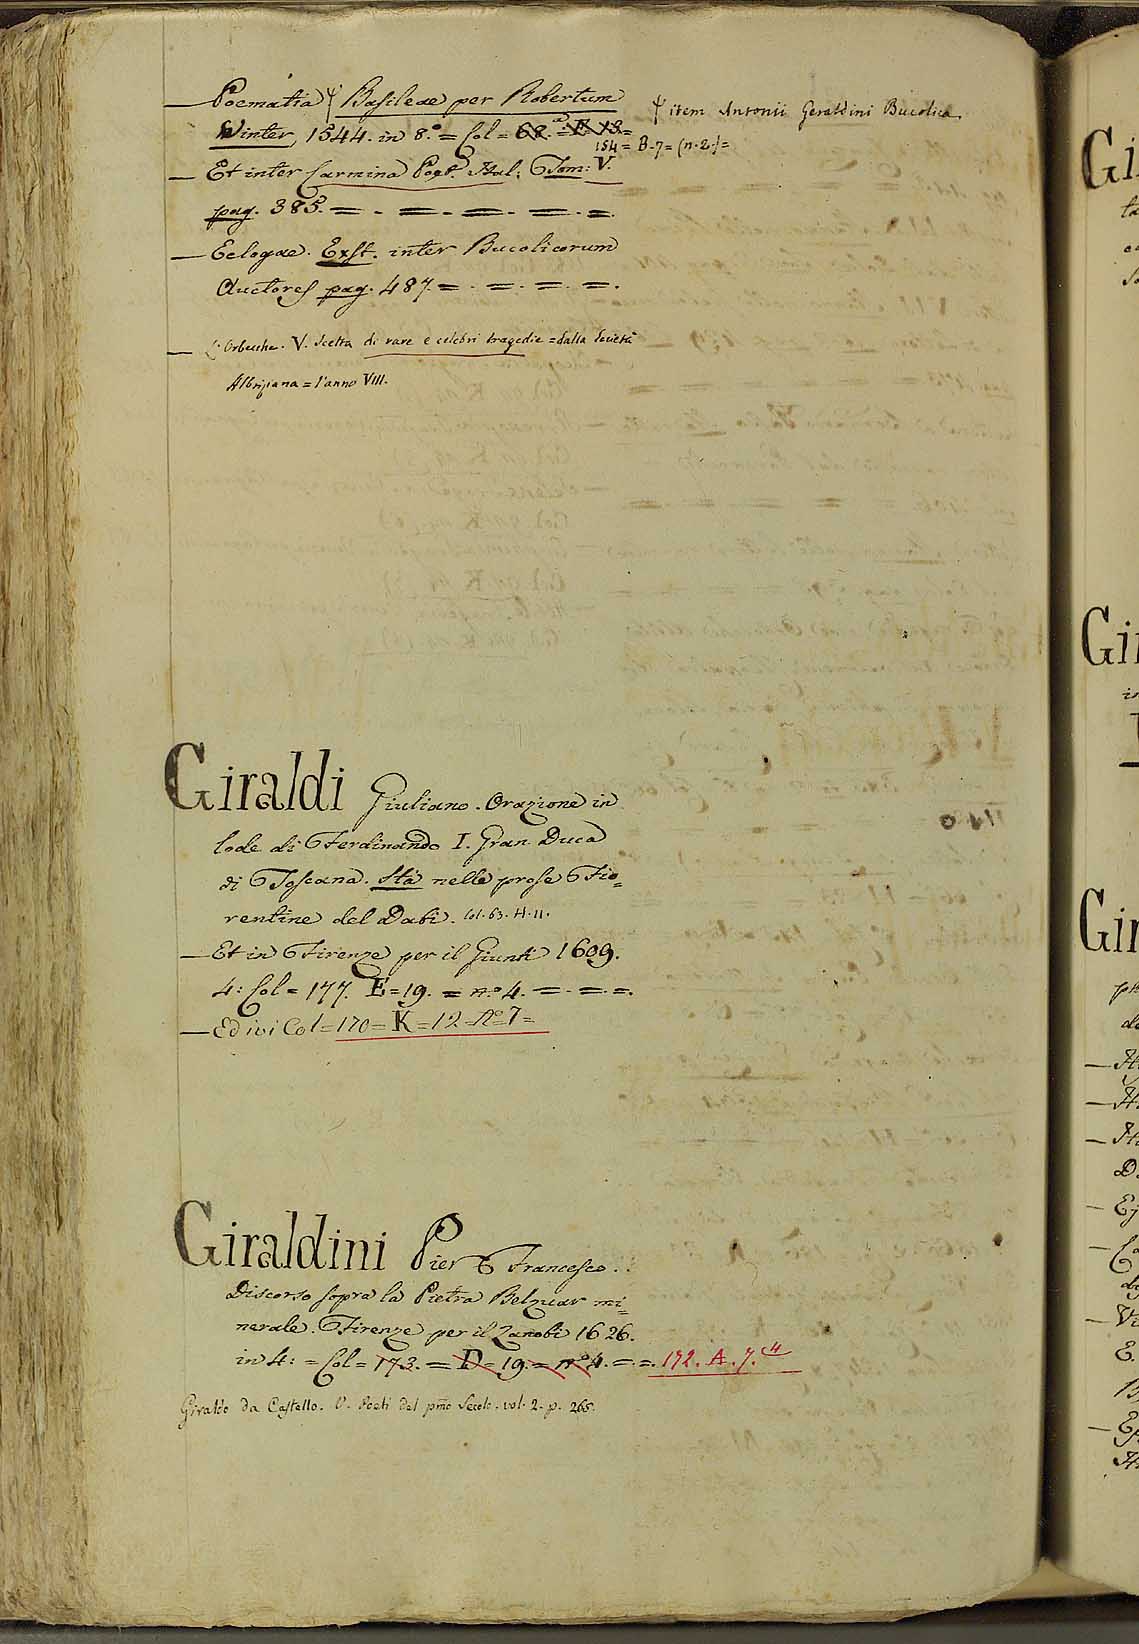 — Poematia Ψ Basileae per Robertum
Ψ item Antonii Geraldini Bucolica.
Winter, 1544. in 8.° = Col = 68. = E. 13 =
154 = B. 7 = (n. 2.) =
— Et inter Carmina Poet. Ital: Tom: V.
pag. 385. = . = . = . = . = .
— Eclogae. Exst. inter Bucolicorum
Auctores pag. 487. = . = . = . = .
— L'Orbecche. V. Scelta di rare e celebri tragedie = dalla Società
Albriziana = l'anno VIII.
Giraldi Giuliano. Orazione in
lode di Ferdinando I. Gran Duca
di Toscana. Sta nelle prose Fio=
rentine del Dati. Col. 63. H. 11.
— Et in Firenze per il Giunti 1609.
4: Col = 177. E = 19. = n.° 4. = . = . = .
— Ed ivi Col = 170 = K = 12 = N.° 7 =
Giraldini Pier Francesco.
Discorso sopra la Pietra Belzuar mi=
nerale. Firenze per il Zanobi 1626.
in 4: = Col = 173. = D = 19. = n.° 4. = . = . 192. A. 7. (4
Giraldo da Castello. V. Poeti del pmo Secolo. vol. 2. p. 265.
Gi
Gi
Gi